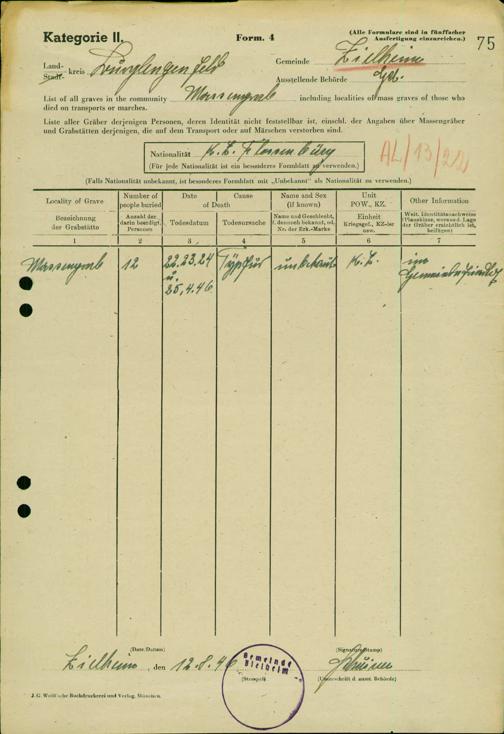 Kategorie II.
Form. 4
(Alle Formulare sind in fünffacher
Ausfertigung einzureichen.)
75
Land-
Stadt- kreis Burglengenfeld
Gemeinde Bielheim
Ausstellende Behörde
List of all graves in the community Massengrab including localities of mass graves of those who
died on transports or marches.
Liste aller Gräber derjenigen Personen, deren Identität nicht feststellbar ist, einschl. der Angaben über Massengräber
und Grabstätten derjenigen, die auf dem Transport oder auf Märschen verstorben sind.
Nationalität K. L. Flossenbürg
(Für jede Nationalität ist ein besonderes Formblatt zu verwenden.)
AL/13/2
(Falls Nationalität unbekannt, ist besonderes Formblatt mit „Unbekannt" als Nationalität zu verwenden.)
Locality of Grave
Bezeichnung
der Grabstätte
1
Number of
people buried
Anzahl der
darin beerdigt.
Personen
2
Date
of Death
Todesdatum
3
Cause
Todesursache
4
Name and Sex
(if known)
Name und Geschlecht,
f. dennoch bekannt, od.
Nr. der Erk.-Marke
5
Unit
POW., KZ.
Einheit
Kriegsgef., KZ-ler
usw.
6
Other Information
Weit. Identitätsnachweise
(Planskizze, woraus d. Lage
der Gräber ersichtlich ist,
beifügen)
7
Massengrab
12
22.23.24
u.
25.4.46
Typhus
unbekannt
K. L.
im
Gemeindefriedhof
(Date/Datum)
Bielheim, den 12.8.46
Gemeinde
Bielheim
(Stempel)
(Signature/Stamp)
(Unterschrift d. ausst. Behörde)
J. G. Weiß'sche Buchdruckerei und Verlag, München.